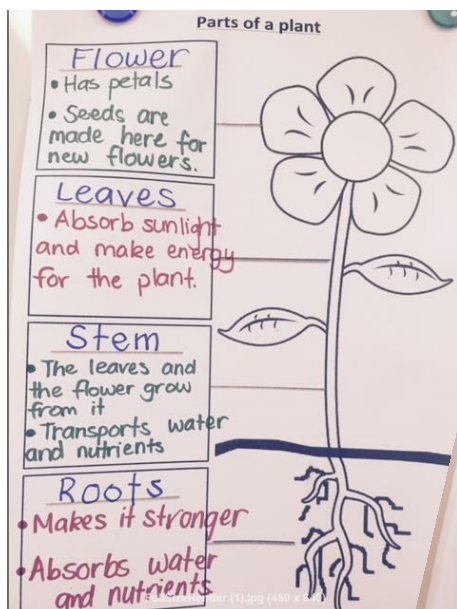 Parts of a plant
Flower
• Has petals
• Seeds are
made here for
new flowers.
Leaves
• Absorb sunlight
and make energy
for the plant.
Stem
• The leaves and
the flower grow
from it
• Transports water
and nutrients
Roots
• Makes it stronger
• Absorbs water
and nutrients
FullSizeRender (1).jpg (480 x 640)